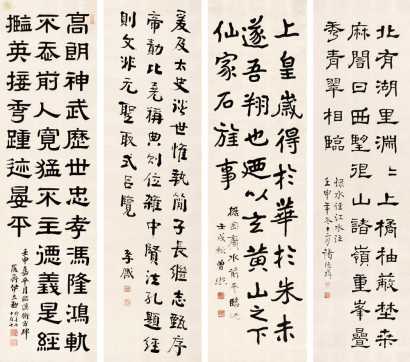 北有湖里淵上橘柚蔽埜桑
麻闇日西望佷山諸嶺重峯疊
秀青翠相臨
水經江水注
壬申年冬十二月
上皇歲得於華於朱未
遂吾翔也迺以玄黃山之下
仙家石旌事
壬戌秋曾熙
爰及太史談世惟執簡子長繼志甄序
帝勣比堯稱典則位雜中賢泣孔題經
則文非元聖取式呂覽
高朗神武歷世忠孝馮隆鴻軌
不忝前人寬猛不主德義是經
韞英接秀踵迹晏平
壬申嘉平月臨漢衡方碑
伊立勳